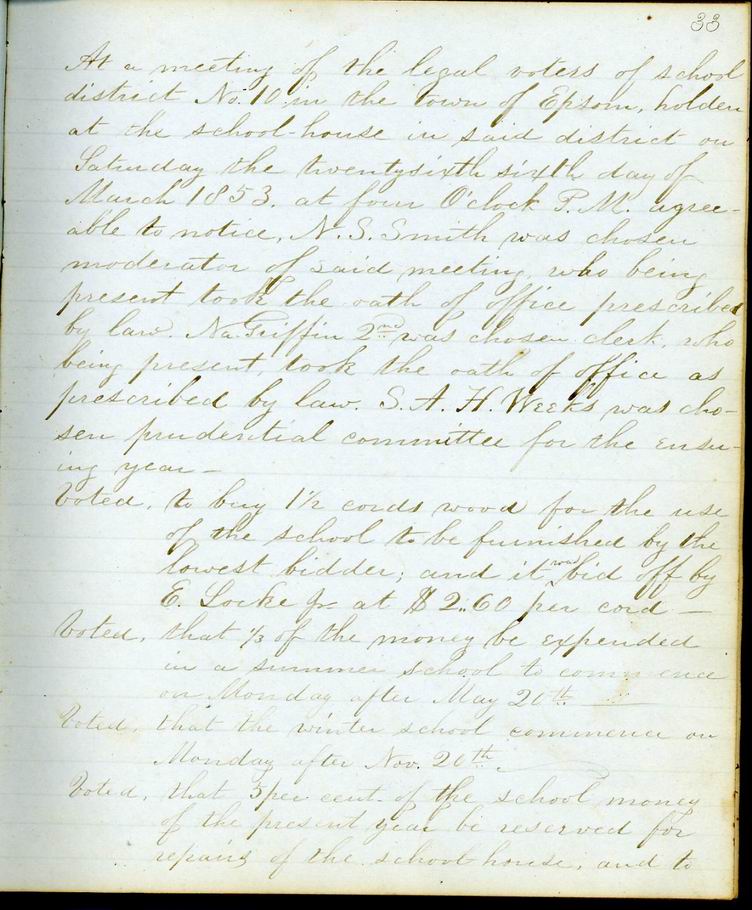 33
At a meeting of the legal voters of school
district No. 10 in the town of Epsom, holden
at the school-house in said district on
Saturday the twentysixth sixth day of
March 1853. at four O'clock P.M. agree-
able to notice, N. S. Smith was chosen
moderator of said meeting, who being
present took the oath of office prescribed
by law. Na. Griffin 2nd was chosen clerk, who
being present, took the oath of office as
prescribed by law. S. A. H. Weeks was cho-
sen prudential committee for the ensu-
ing year—
Voted, to buy 1½ cords wood for the use
of the school to be furnished by the
lowest bidder; and it was bid off by
E. Locke Jr. at $2..60 per cord —
Voted, that ⅓ of the money be expended
in a summer school to commence
on Monday after May 20th.
Voted, that the winter school commence on
Monday after Nov. 20th.
Voted, that 5 per cent. of the school money
of the present year be reserved for
repairs of the school house; and to